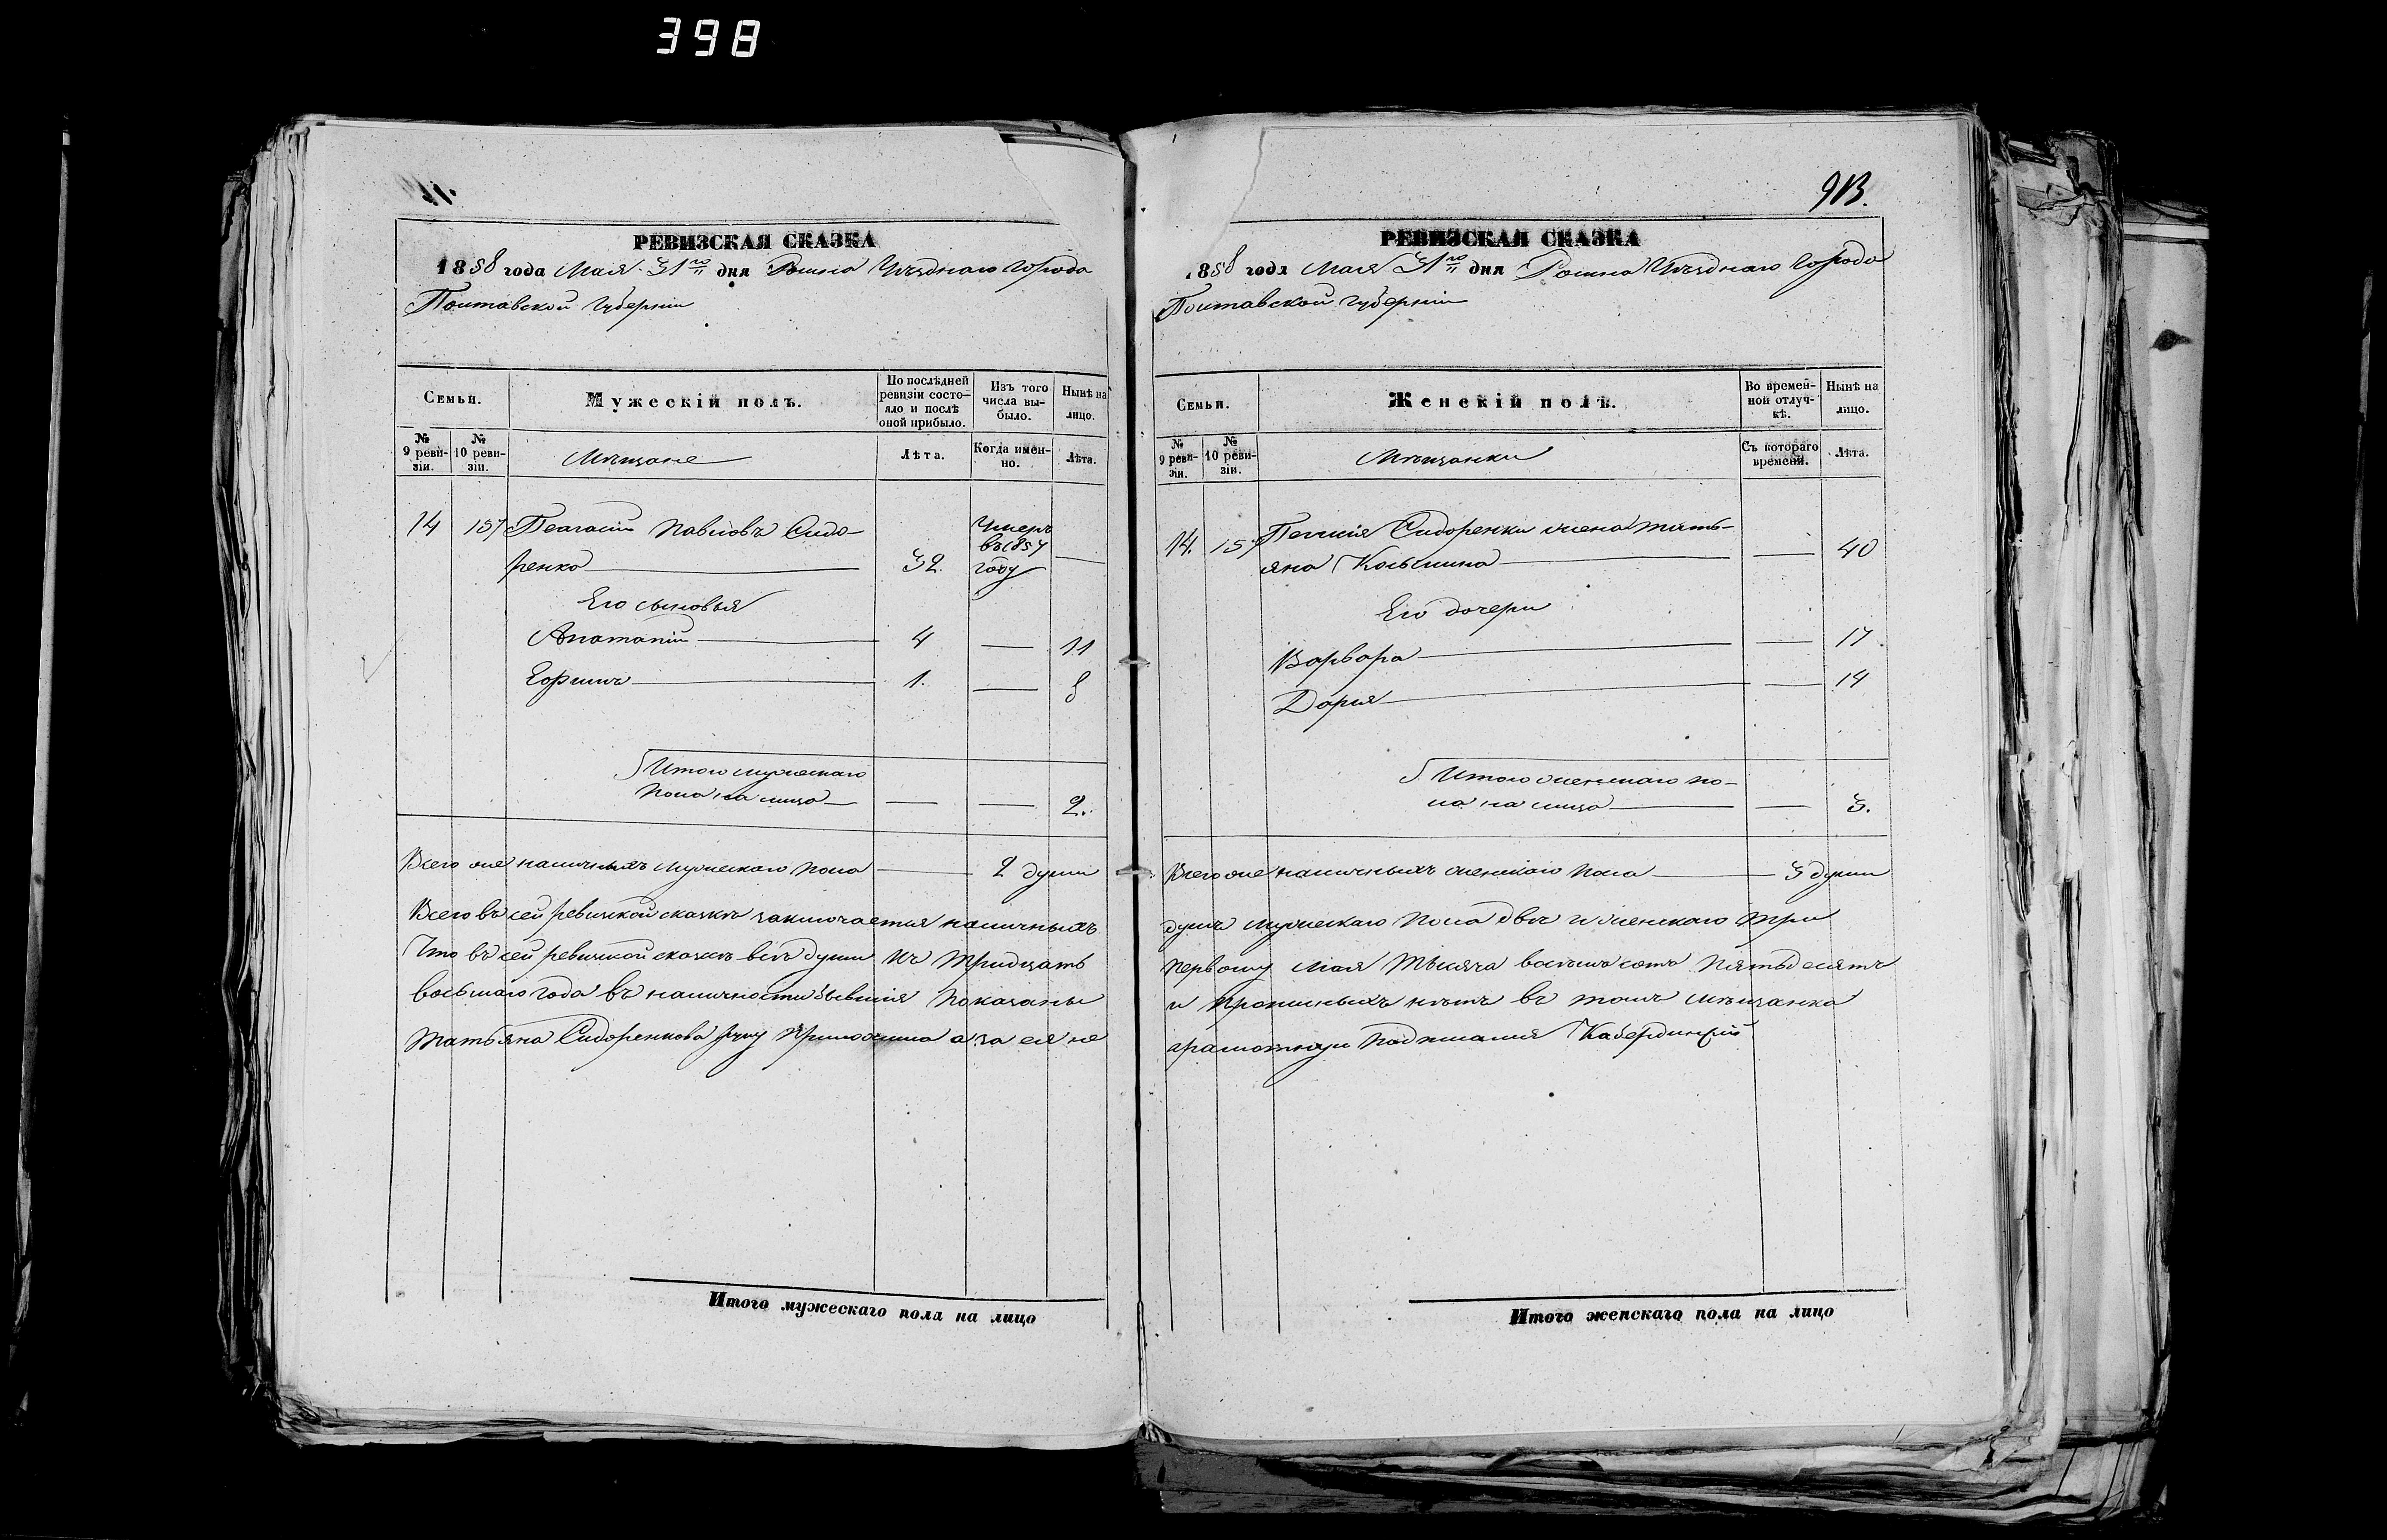 398
РЕВИЗСКАЯ СКАЗКА
1858 года Мая 31го дня Ромна Уѣзднаго города
Полтавской губерніи
Семьи.
Мужескій полъ.
По послѣдней ревизіи состояло и послѣ оной прибыло.
Изъ того числа выбыло.
Нынѣ на лицо.
№ 9 ревизіи.
№ 10 ревизіи.
Мѣщане
Лѣта.
Когда именно.
Лѣта.
14 157 Павловъ Сидо-
ренко 32. Умеръ въ 1854 году
Его сыновья
4 — 11
1. — 8
Итого мужескаго
пола на лицо — — 2.
Всего же наличныхъ мужескаго пола — 2 души
Всего въ сей ревизской сказкѣ заключается наличныхъ
Что въ сей ревизской сказкѣ всѣ души къ тридцать
восьмаго года въ наличности бывшія показаны
Татьяна Сидоренкова руку приложила а за ея не
Итого мужескаго пола на лицо
913.
РЕВИЗСКАЯ СКАЗКА
1858 года Мая 31го дня Ромна Уѣзднаго города
Полтавской губерніи
Семьи.
Женскій полъ.
Во временной отлучкѣ.
Нынѣ на лицо.
№ 9 ревизіи.
№ 10 ревизіи.
Мѣщанки
Съ котораго времени.
Лѣта.
14. 157 Сидоренки жена Тать-
яна Козьмина — 40
Его дочери
Варвара — 17
Дарья — 14
Итого женскаго по-
ла на лицо — 3.
Всего же наличныхъ женскаго пола — 3 души
душъ мужескаго пола двѣ и женскаго три
первому мая тысяча восемьсотъ пятьдесятъ
и прописныхъ нѣтъ въ томъ мѣщанка
грамотную подписался
Итого женскаго пола на лицо